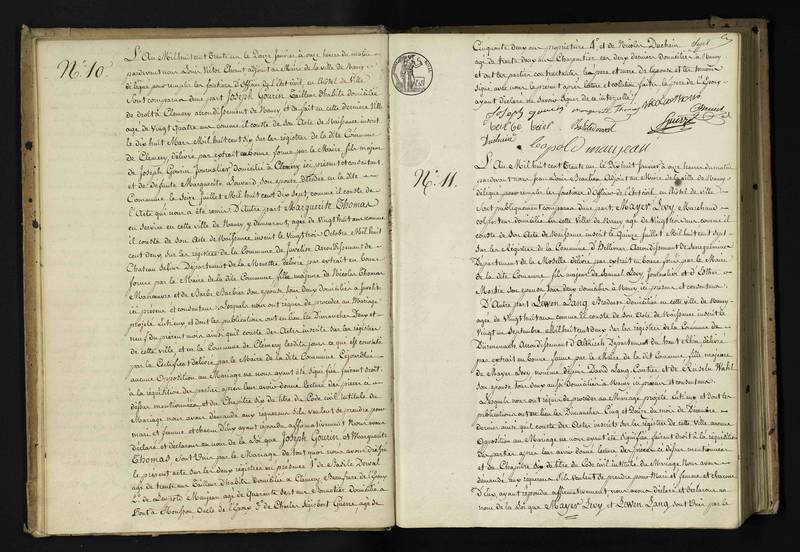 N.° 10.
L'An Mil huit cent Trente un le Douze Janvier à onze heures du matin
pardevant nous Louis Victor adjoint au Maire de la ville de Nancy
délégué pour remplir les fonctions d'Officier de l'état civil, en l'hôtel de Ville
Sont comparus d'une part Joseph Gourin Tailleur d'habits domicilié
de droit à Clémery arrondissement de Nancy et de fait en cette dernière Ville
âgé de Vingt Quatre ans comme il conste de son Acte de Naissance inscrit
le dix huit Mars Mil huit cent Six sur les registres de la dite Commune
de Clémery, délivré par extrait en bonne forme par le Maire, fils majeur
de Joseph Gourin journalier domicilié à Clémery ici présent et consentant,
et de défunte Marguerite son épouse décédée en la dite
Commune le Seize Juillet Mil huit cent dix Sept, comme il conste de
l'Acte qui nous a été remis. D'autre part Marguerite Thomas
en service en cette ville de Nancy y demeurant, âgée de Vingt huit ans comme
il conste de son Acte de Naissance inscrit le Vingt trois Octobre Mil huit
cent deux sur les registres de la Commune de arrondissement de
Château Salins Département de la Meurthe, délivré par extrait en bonne
forme par le Maire de la dite Commune, fille majeure de Nicolas Thomas
Manœuvre et de Barbe Barbier son épouse tous deux domiciliés à
ici présens et consentans, Lesquels nous ont requis de procéder au Mariage
projeté entr'eux et dont les publications ont eu lieu les Dimanches Deux et
neuf du présent mois ainsi qu'il conste des Actes inscrits sur les registres
de cette ville, et en la Commune de Clémery lesdits jours ce qui est constaté
par le Certificat délivré par le Maire de la dite Commune
aucune Opposition au Mariage ne nous ayant été signifiée, faisant droit
à la réquisition des parties après leur avoir donné lecture des pièces ci
dessus mentionnées, et du Chapitre Six du titre du Code civil intitulé du
Mariage nous avons demandé aux requérans s'ils veulent se prendre pour
mari et femme et chacun d'eux ayant répondu affirmativement Nous avons
déclaré et déclarons au nom de la loi que Joseph Gourin et Marguerite
Thomas sont Unis par le Mariage de tout quoi nous avons dressé
le présent acte sur les deux registres en présence 1.° de Basile
âgé de trente ans Tailleur d'habits domicilié à Clémery Beaufrère de l'époux
2.° de Léopold Maujean âgé de Quarante Sept ans domicilié à
Pont à Mousson Oncle de l'époux 3.° de Charles Guerre âgé de
Cinquante deux ans propriétaire 4.° et de Nicolas Duchain
âgé de trente deux ans Charpentier ces deux derniers domiciliés à Nancy
et ont les parties contractantes les père et mère de l'épouse et les témoins
signé avec nous le présent après lecture et collation faite, le père de l'époux
ayant déclaré ne savoir signer de ce interpellé.
Joseph gourin marguerite Thomas
Duchain
Guerre
Leopold maujean
N.° 11.
L'An Mil huit cent Trente un le Dix huit Janvier à onze heures du matin
pardevant nous Jean Louis Adjoint au Maire de la ville de Nancy
délégué pour remplir les fonctions d'Officier de l'état civil, en l'hôtel de ville
Sont publiquement comparus d'une part, Mayer Levy Marchand
colporteur domicilié en cette Ville de Nancy âgé de Vingt trois ans comme il
conste de son Acte de Naissance inscrit le Quinze Juillet Mil huit cent Sept
sur les Registres de la Commune d'Hellimer Arrondissement de Sarreguemines
Département de la Moselle délivré par extrait en bonne forme par le Maire
de la dite Commune fils majeur de Samuel Levy et d'Esther
son épouse tous deux domiciliés à Nancy ici présens et consentans.
D'Autre part Lewen Lang Brodeuse domiciliée en cette ville de Nancy
âgée de Vingt huit ans comme il conste de son Acte de Naissance inscrit le
Vingt un Septembre Mil huit cent deux sur les registres de la Commune de
Durmenach Arrondissement d'Altkirch Département du haut Rhin, délivré
par extrait en bonne forme par le Maire de la dite Commune, fille majeure
de Mayer Levy nommé depuis David Lang et de
son épouse tous deux aussi domiciliés à Nancy ici présens et consentans.
Lesquels nous ont requis de procéder au Mariage projeté entr'eux et dont les
publications ont eu lieu les Dimanches Cinq et Douze du mois de Décembre
dernier ainsi qu'il conste des Actes inscrits sur les registres de cette Ville aucune
Opposition au Mariage ne nous ayant été signifiée faisant droit à la réquisition
des parties après leur avoir donné lecture des pièces ci dessus mentionnées
et du Chapitre Six du titre du Code civil intitulé du Mariage Nous avons
demandé aux requérans s'ils veulent se prendre pour Mari et femme et chacun
D'eux ayant répondu affirmativement, nous avons déclaré et déclarons au
nom de la loi que Mayer Levy et Lewen Lang sont Unis par le